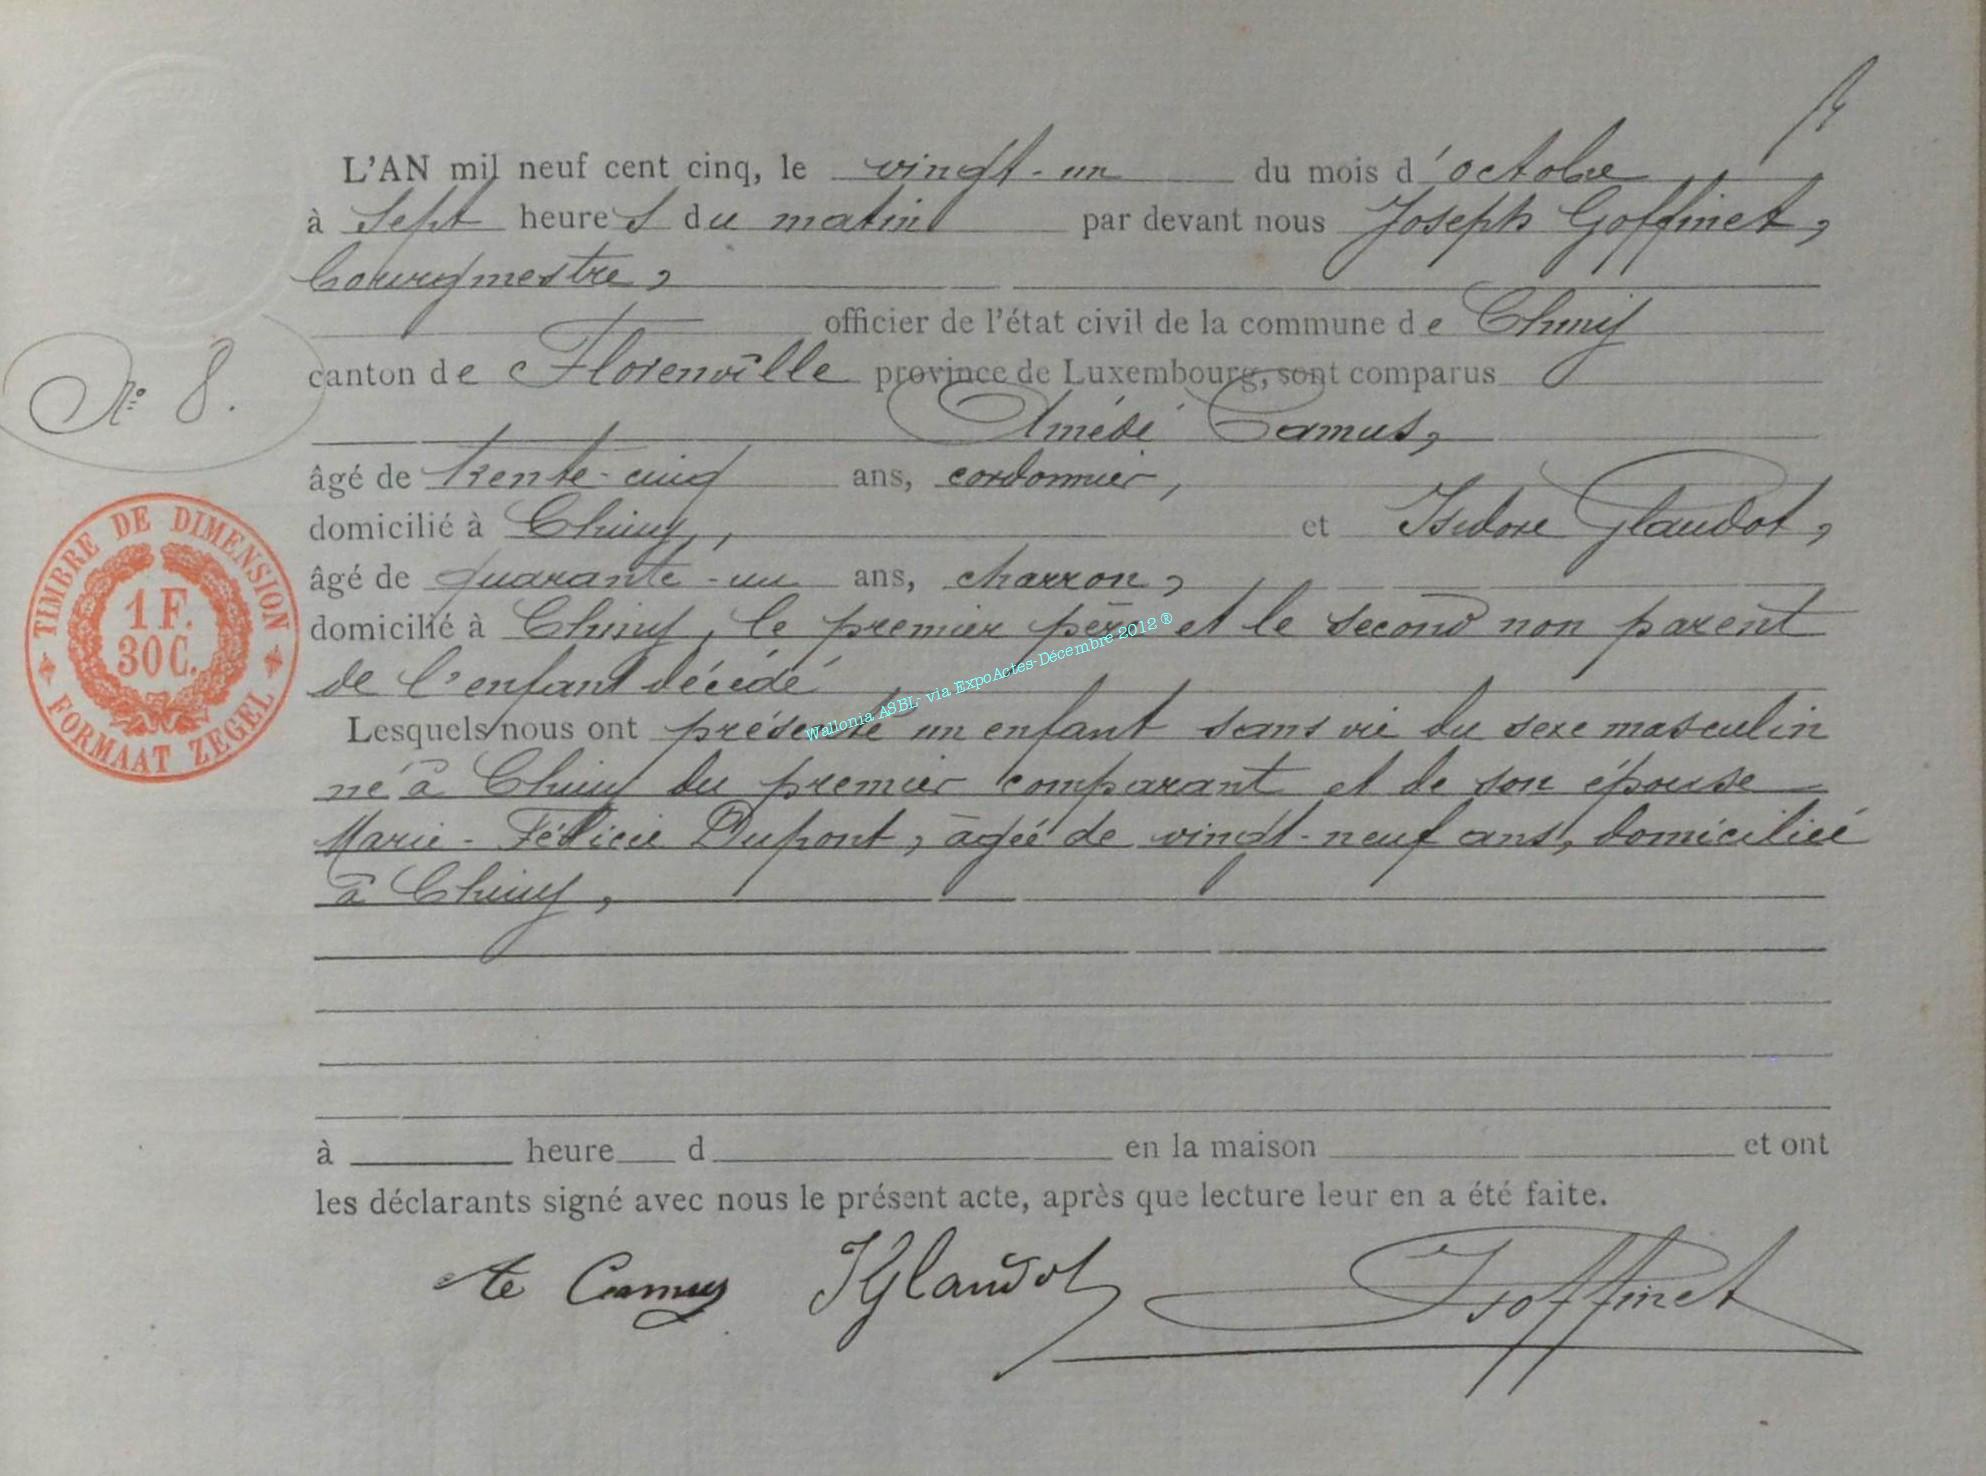 L'AN mil neuf cent cinq, le vingt-un du mois d'octobre
à sept heures du matin par devant nous Joseph Goffinet,
bourgmestre,
officier de l'état civil de la commune de Chiny
N° 8.
canton de Florenville province de Luxembourg, sont comparus
Amédé Camus,
âgé de trente-cinq ans, cordonnier,
domicilié à Chiny, et Isidore Glaudot,
âgé de quarante-un ans, charron,
domicilié à Chiny, le premier père et le second non parent
de l'enfant décédé
Lesquels nous ont présenté un enfant sans vie du sexe masculin
né à Chiny du premier comparant et de son épouse
Marie-Félicie Dupont, âgée de vingt-neuf ans, domiciliée
à Chiny,
à heure d en la maison et ont
les déclarants signé avec nous le présent acte, après que lecture leur en a été faite.
Camus JGlaudot JGoffinet
TIMBRE DE DIMENSION
1 F.
30 C.
FORMAAT ZEGEL
Wallonia ASBL- via ExpoActes-Décembre 2012 ®